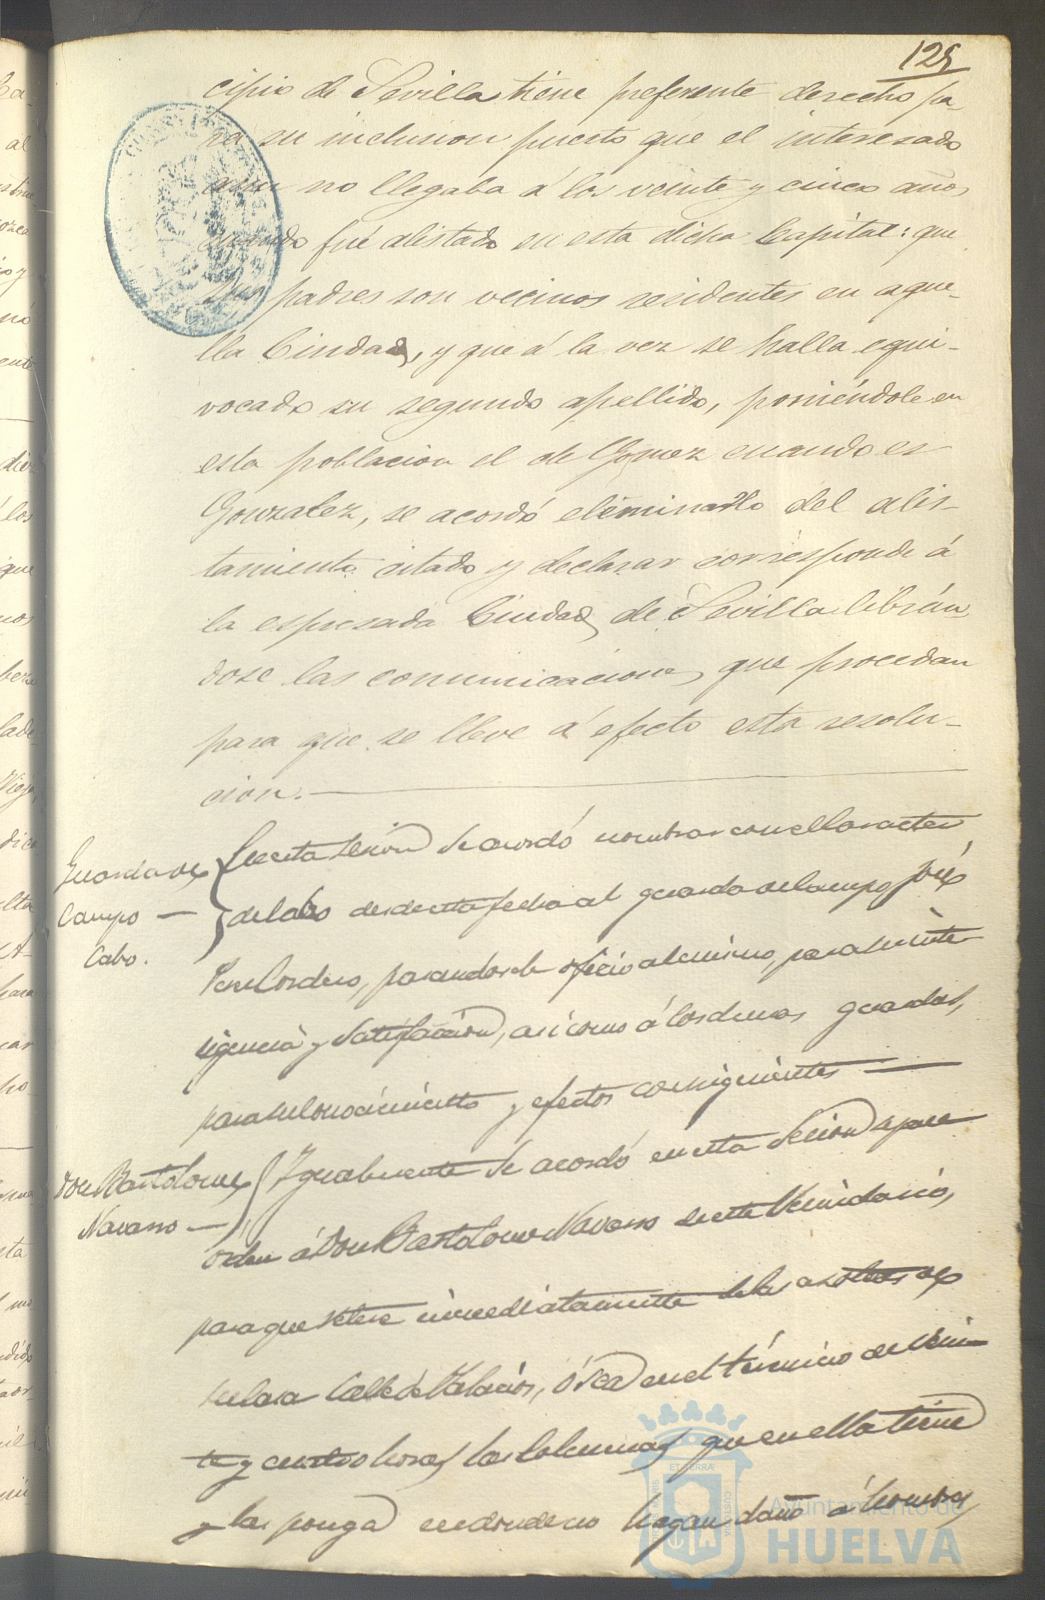 125
cipio de Sevilla tiene preferente derecho pa
ra su inclusion puesto que el interesado
aun no llegaba á los veinte y cinco años
cuando fué alistado en esta dicha Capital: que
sus padres son vecinos residentes en aque-
lla Ciudad, y que á la vez se halla equi-
vocado su segundo apellido, poniéndole en
esta poblacion el de Gomez cuando es
Gonzalez, se acordó eliminarlo del alis-
tamiento citado y declarar corresponde á
la espresada Ciudad de Sevilla librán
dose las comunicaciones que procedan
para que se lleve á efecto esta resolu-
cion.
Guarda de
Campo —
Cabo.
En esta sesion se acordó nombrar con el caracter
de Cabo desde esta fecha al guarda de campo José
Cordero, pasandosele oficio al mismo, para su inte-
ligencia y satisfaccion, asi como á los demas guardas,
para su conocimiento y efectos consiguientes
Don Bartolome
Navarro —
Igualmente se acordó en esta sesion
orden á Don Bartolome Navarro de este vecindario,
para que retire inmediatamente de las azoteas de
su casa Calle de Palacios, ó sea en el término de vein-
te y cuatro horas las colmenas que en ella tiene
y las ponga en donde no hagan daño á hombres
Ayuntamiento de
HUELVA